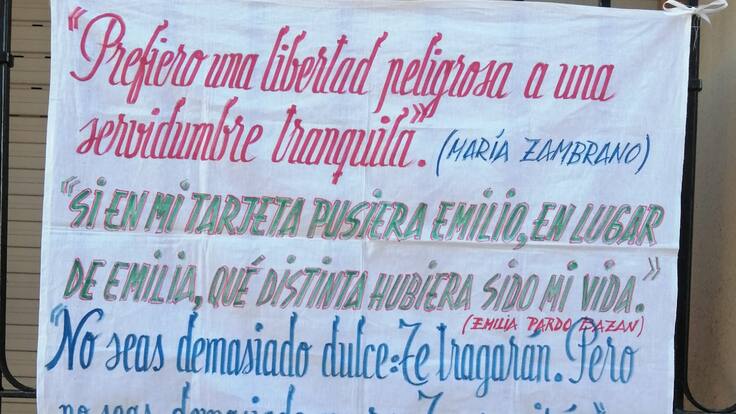 "Prefiero una libertad peligrosa a una
servidumbre tranquila". (MARÍA ZAMBRANO)
"SI EN MI TARJETA PUSIERA EMILIO, EN LUGAR
DE EMILIA, QUÉ DISTINTA HUBIERA SIDO MI VIDA."
(EMILIA PARDO BAZAN)
"No seas demasiado dulce: Te tragarán. Pero
no seas